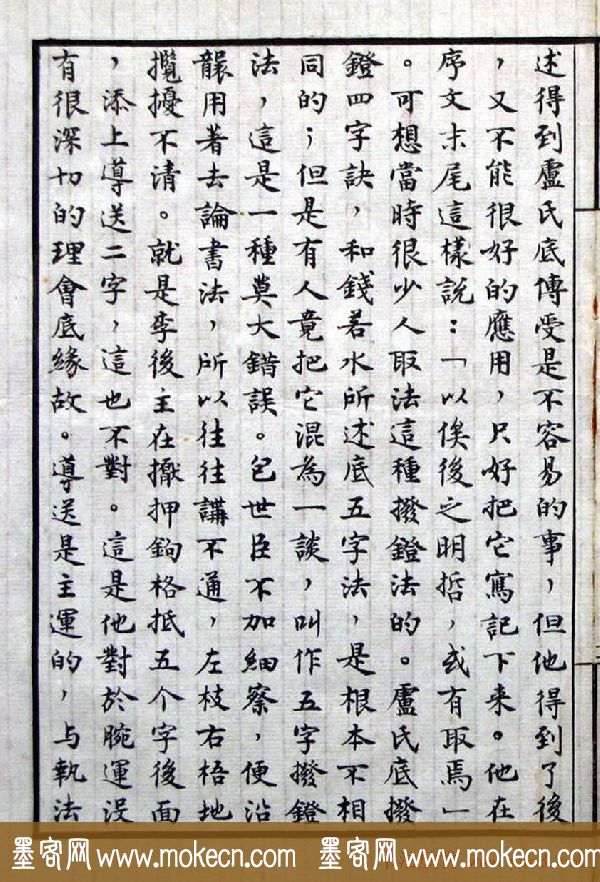 述得到盧氏底傳受是不容易的事，但他得到了後
，又不能很好的應用，只好把它寫記下来。他在
序文末尾這樣說：「以俟後之明哲，或有取焉一
。可想當時很少人取法這種撥鐙法的。盧氏底撥
鐙四字訣，和錢若水所述底五字法，是根本不相
同的；但是有人竟把它混為一談，叫作五字撥鐙
法，這是一種莫大錯誤。包世臣不加細察，便沿
襲用著去論書法，所以往往講不通，左枝右梧地
攪擾不清。就是李後主在擫押鉤格抵五个字後面
，添上導送二字，這也不對。這是他對於腕運没
有很深切的理會底緣故。導送是主運的，与執法
墨客网 www.mokecn.com 墨客网 www.mokecn.com